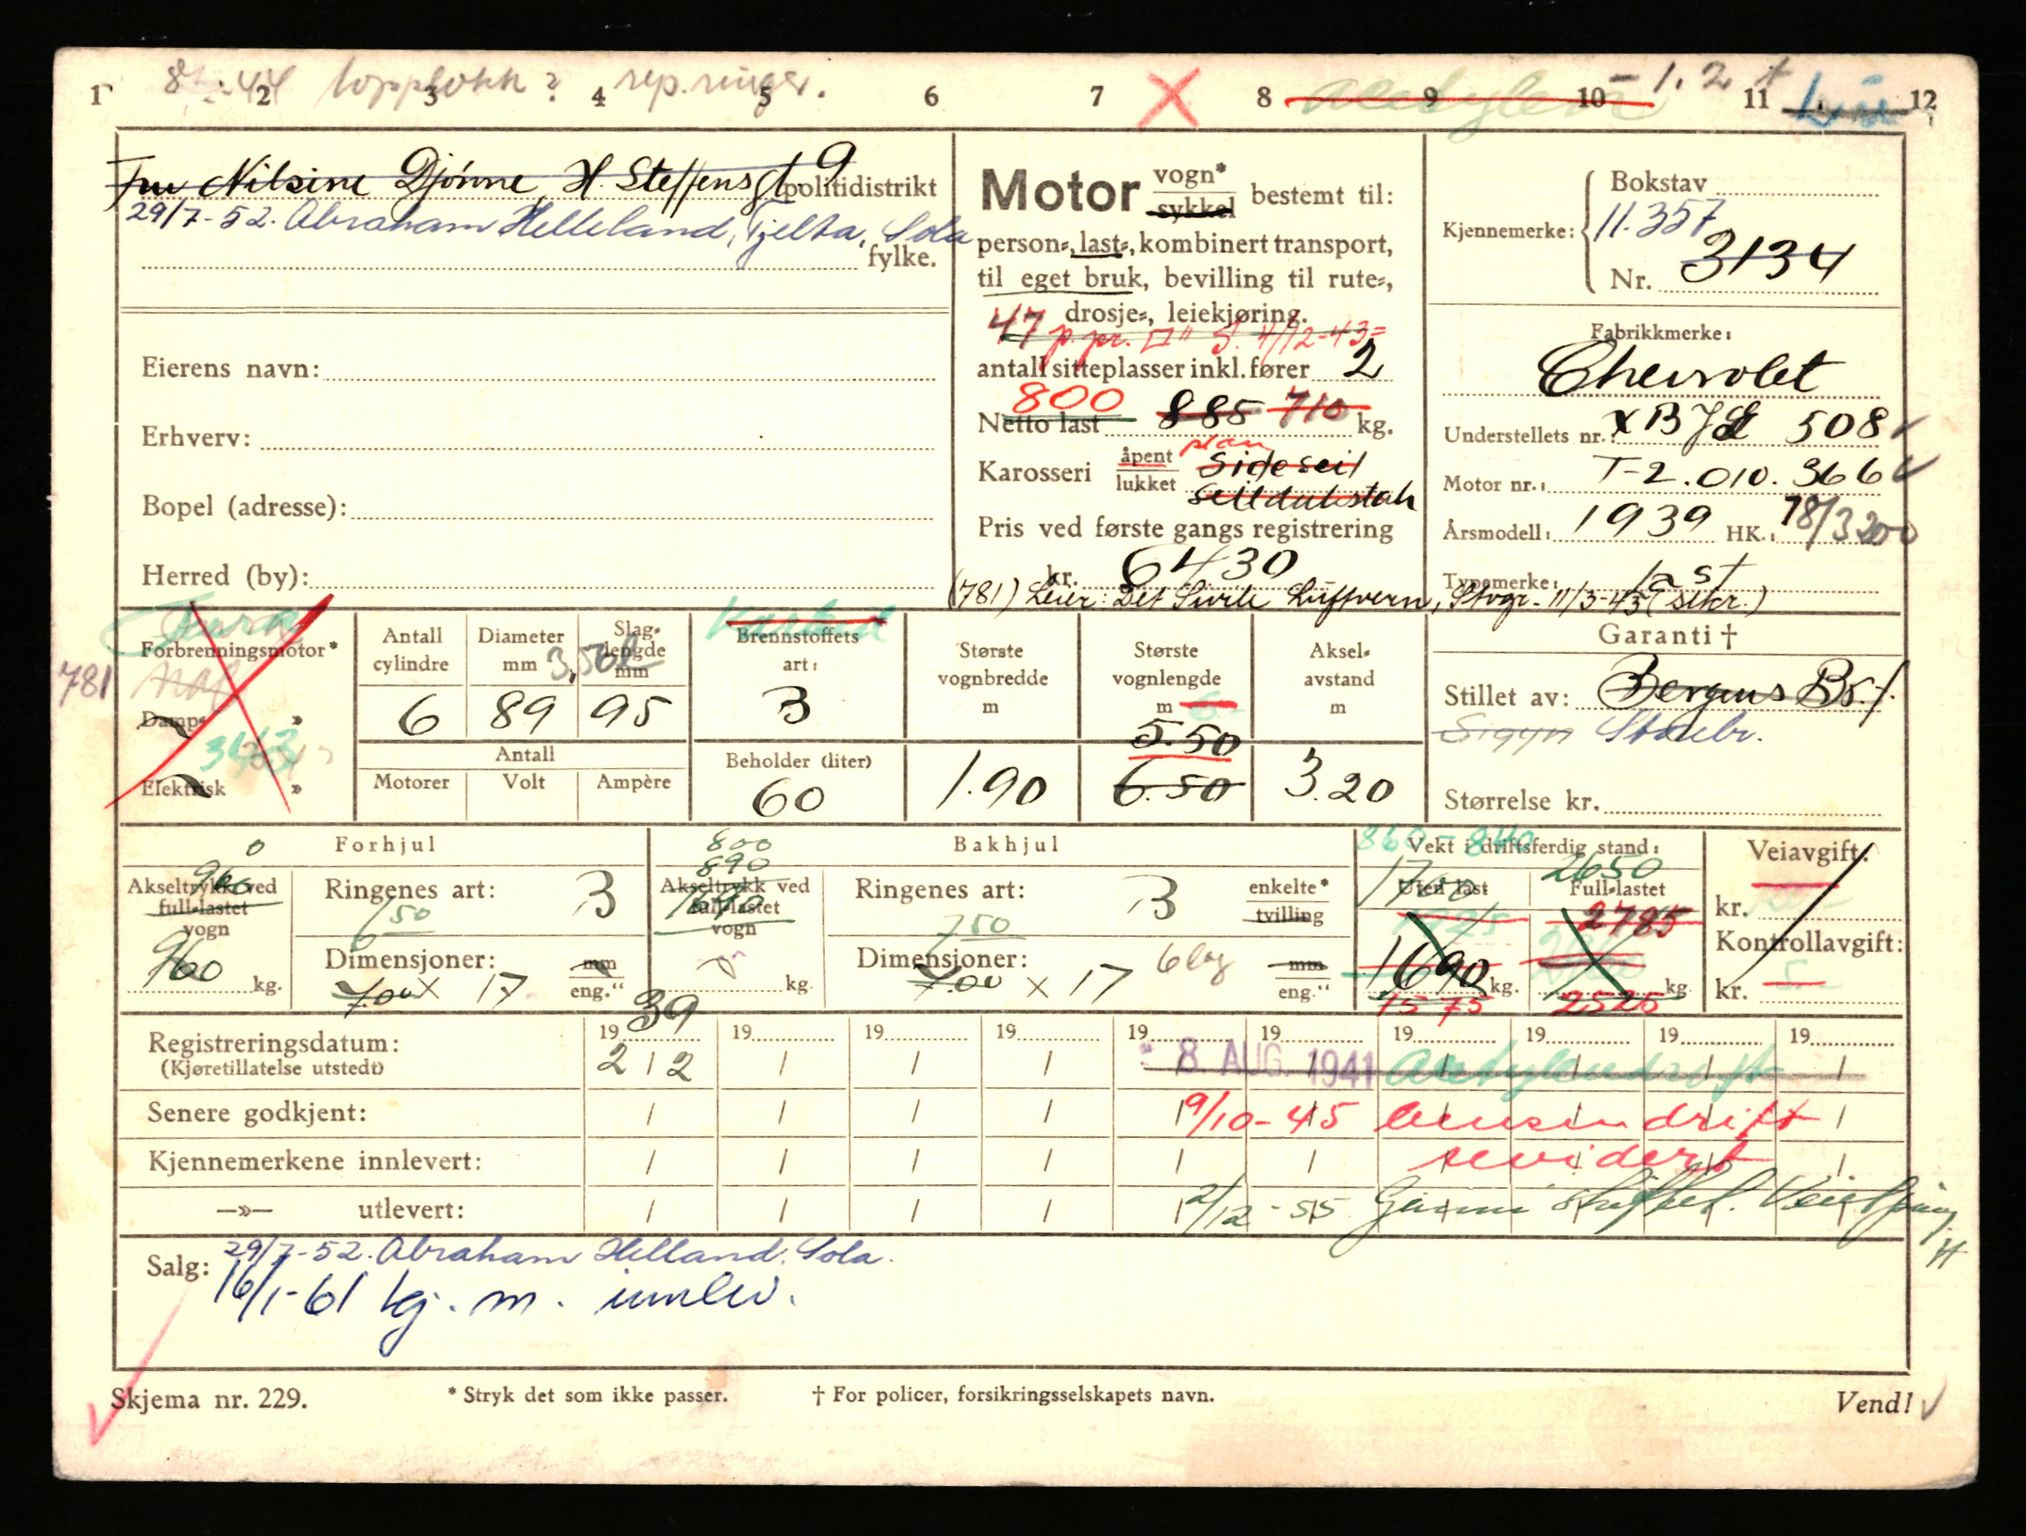 1 2 3 4 5 6 7 8 9 10 11 12
rep. ringer.
Acetylen - 1.2
Fru Nilsine Djönne, H. Steffensgt. 9
politidistrikt
29/7-52. Abraham Helleland, Tjelta, Sola
fylke.
Eierens navn:
Erhverv:
Bopel (adresse):
Herred (by):
Motor vogn* sykkel bestemt til:
person-, last-, kombinert transport,
til eget bruk, bevilling til rute-,
drosje-, leiekjøring.
47 p.pr. 4/12-43
antall sitteplasser inkl. fører 2
800
Netto last 885 710 kg.
plan
Karosseri åpent lukket sideseil
Pris ved første gangs registrering
kr. 6430
(781) Leier: Det Sivile Luftvern, Stvgr. 11/3-43
Kjennemerke:
Bokstav
11.357
Nr. 3134
Fabrikkmerke:
Chevrolet
Understellets nr.: 508
Motor nr.: T-2.010.366
Årsmodell: 1939 HK.: 78/3200
Typemerke: last
781
Forbrenningsmotor*
Damp- »
3443
Elektrisk »
Antall cylindre
6
Diameter mm
89
Slaglengde mm
3,50
95
Antall
Motorer Volt Ampère
Brennstoffets art:
B
Beholder (liter)
60
Største vognbredde m
1.90
Største vognlengde m
5.50
6.50
Akselavstand m
3.20
Garanti †
Stillet av: Bergens Br.f.
Sigyn Storebr.
Størrelse kr.
Forhjul
Akseltrykk ved full-lastet vogn
960
960 kg.
Ringenes art: B
650
Dimensjoner: mm eng."
7.00 x 17
Bakhjul
800
890
Akseltrykk ved full-lastet vogn
kg.
Ringenes art: B enkelte* tvilling
750
Dimensjoner: mm eng."
7.00 x 17 6 lag
860 - 840
Vekt i driftsferdig stand:
1700 2650
Uten last Full-lastet
1725 2785
1690 kg. kg.
1575 2525
Veiavgift:
kr.
Kontrollavgift:
kr. 5
19 39 19 19 19 19 19 19 19 19 19
Registreringsdatum:
(Kjøretillatelse utstedt)
2/12
8. AUG. 1941 Acetylendrift
Senere godkjent:
9/10-45 bensindrift
Kjennemerkene innlevert:
revidert
—»— utlevert:
2/12-55 Gummi
Salg: 29/7-52. Abraham Helland, Sola.
16/1-61 kj. m. innlev.
Skjema nr. 229.
* Stryk det som ikke passer.
† For policer, forsikringsselskapets navn.
Vend!